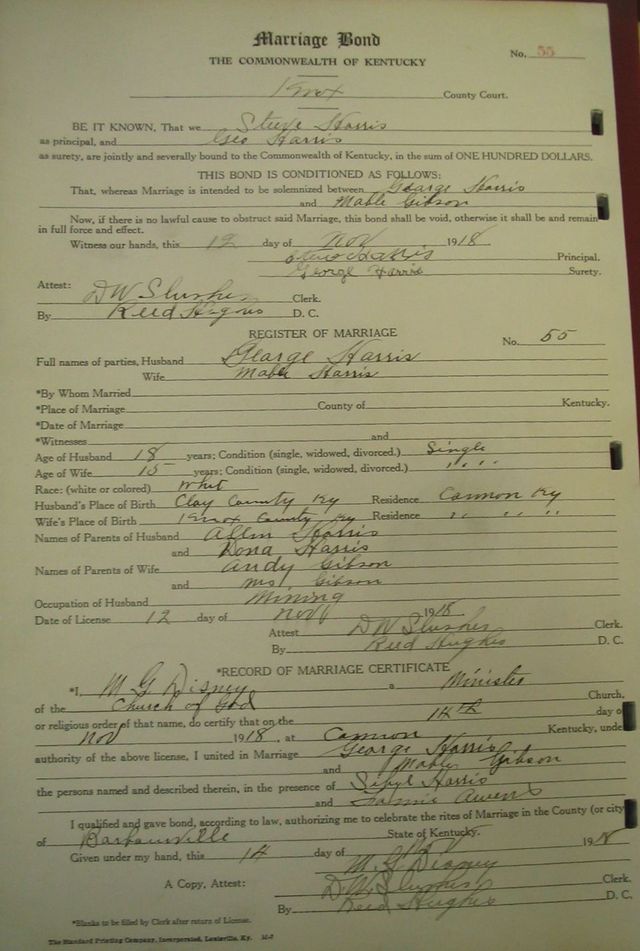 Marriage Bond
THE COMMONWEALTH OF KENTUCKY
No. 55
Knox County Court.
BE IT KNOWN, That we Steve Harris
as principal, and Geo Harris
as surety, are jointly and severally bound to the Commonwealth of Kentucky, in the sum of ONE HUNDRED DOLLARS.
THIS BOND IS CONDITIONED AS FOLLOWS:
That, whereas Marriage is intended to be solemnized between George Harris
and Mable Gibson
Now, if there is no lawful cause to obstruct said Marriage, this bond shall be void, otherwise it shall be and remain
in full force and effect.
Witness our hands, this 12 day of Nov 1918
Steve Harris Principal.
George Harris Surety.
Attest:
DW Slusher Clerk.
By Reed Hughes D. C.
REGISTER OF MARRIAGE
No. 55
Full names of parties, Husband George Harris
Wife Mable Harris
*By Whom Married
*Place of Marriage County of Kentucky.
*Date of Marriage
*Witnesses and
Age of Husband 18 years; Condition (single, widowed, divorced.) Single
Age of Wife 15 years; Condition (single, widowed, divorced.) " " "
Race: (white or colored) Whit
Husband's Place of Birth Clay County Ky Residence Cannon Ky
Wife's Place of Birth Knox County Ky Residence " " "
Names of Parents of Husband Allen Harris
and Dona Harris
Names of Parents of Wife Andy Gibson
and Mrs Gibson
Occupation of Husband Mining
Date of License 12 day of Nov 1918
Attest DW Slusher Clerk.
By Reed Hughes D. C.
*RECORD OF MARRIAGE CERTIFICATE
*I, M G Disney a Minister
of the Church of God Church,
or religious order of that name, do certify that on the 14th day of
Nov 1918, at Cannon Kentucky, unde
authority of the above license, I united in Marriage George Harris
and Mable Gibson
the persons named and described therein, in the presence of Sibyl Harris
and Owens
I qualified and gave bond, according to law, authorizing me to celebrate the rites of Marriage in the County (or city
of Barbourville State of Kentucky.
Given under my hand, this 14 day of Nov 1918
M. G. Disney
A Copy, Attest: D.W. Slusher Clerk.
By Reed Hughes D. C.
*Blanks to be filled by Clerk after return of License.
The Standard Printing Company, Incorporated, Louisville, Ky.